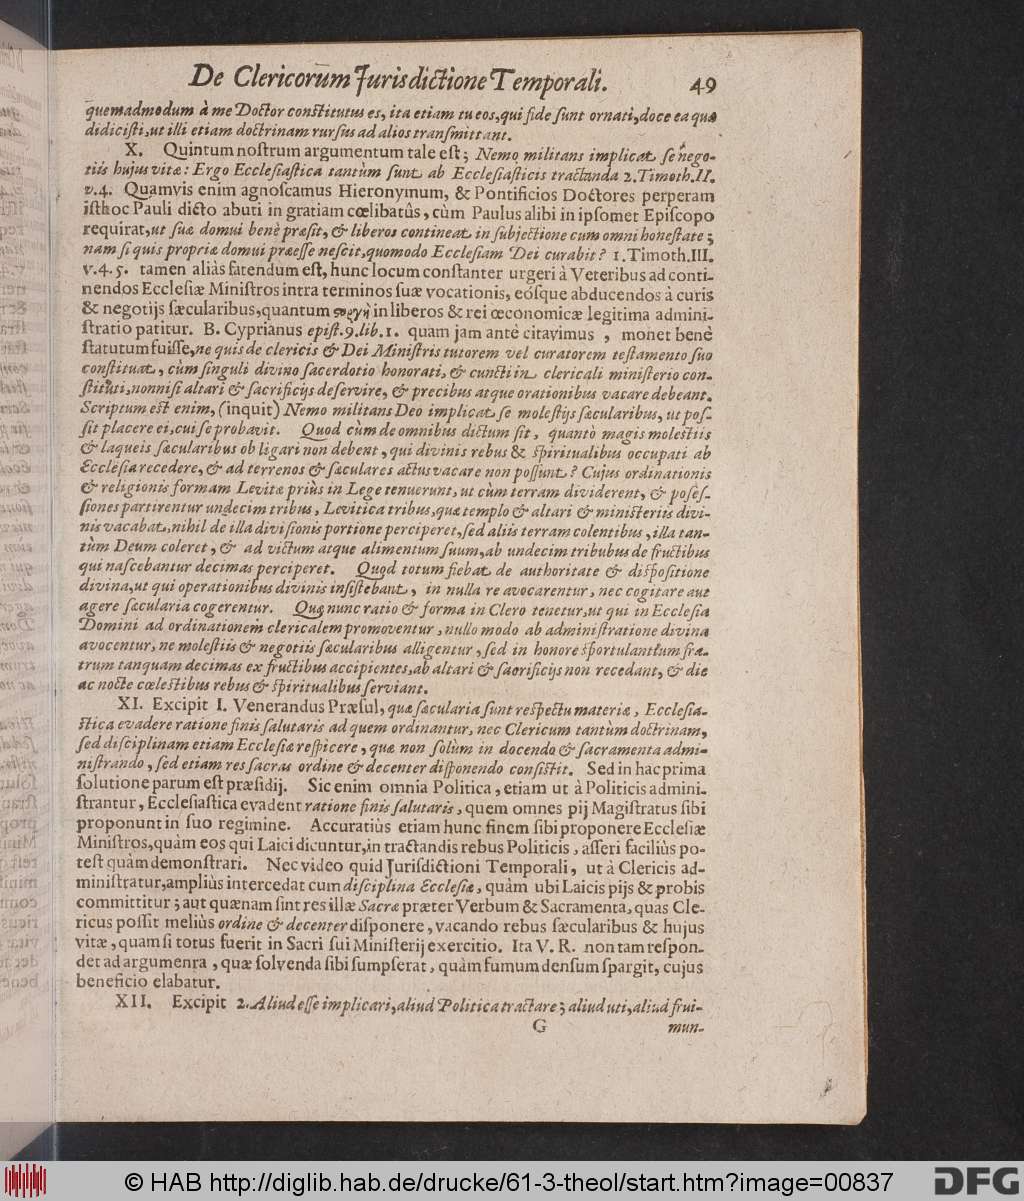 De Clericorum Jurisdictione Temporali. 49
quemadmodum à me Doctor constitutus es, ita etiam tu eos, qui fide sunt ornati, doce ea quæ
didicisti, ut illi etiam doctrinam rursus ad alios transmittant.
X. Quintum nostrum argumentum tale est; Nemo militans implicat se nego-
tiis hujus vitæ: Ergo Ecclesiastica tantùm sunt ab Ecclesiasticis tractanda 2. Timoth. II.
v. 4. Quamvis enim agnoscamus Hieronymum, & Pontificios Doctores perperam
isthoc Pauli dicto abuti in gratiam cœlibatûs, cùm Paulus alibi in ipsomet Episcopo
requirat, ut suæ domui benè præsit, & liberos contineat in subjectione cum omni honestate;
nam si quis propriæ domui præesse nescit, quomodo Ecclesiam Dei curabit? 1. Timoth. III.
v. 4. 5. tamen aliàs fatendum est, hunc locum constanter urgeri à Veteribus ad conti-
nendos Ecclesiæ Ministros intra terminos suæ vocationis, eósque abducendos à curis
& negotijs sæcularibus, quantum στοργὴ in liberos & rei œconomicæ legitima admini-
stratio patitur. B. Cyprianus epist. 9. lib. 1. quam jam antè citavimus, monet benè
statutum fuisse, ne quis de clericis & Dei Ministris tutorem vel curatorem testamento suo
constituat, cùm singuli divino sacerdotio honorati, & cuncti in clericali ministerio con-
stituti, nonnisi altari & sacrificijs deservire, & precibus atque orationibus vacare debeant.
Scriptum est enim, (inquit) Nemo militans Deo implicat se molestijs sæcularibus, ut pos-
sit placere ei, cui se probavit. Quod cùm de omnibus dictum sit, quantò magis molestiis
& laqueis sæcularibus obligari non debent, qui divinis rebus & spiritualibus occupati ab
Ecclesia recedere, & ad terrenos & sæculares actus vacare non possunt? Cujus ordinationis
& religionis formam Levitæ priùs in Lege tenuerunt, ut cùm terram dividerent, & posses-
siones partirentur undecim tribus, Levitica tribus, quæ templo & altari & ministeriis divi-
nis vacabat, nihil de illa divisionis portione perciperet, sed aliis terram colentibus, illa tan-
tùm Deum coleret, & ad victum atque alimentum suum, ab undecim tribubus de fructibus
qui nascebantur decimas perciperet. Quod totum fiebat de authoritate & dispositione
divina, ut qui operationibus divinis insistebant, in nulla re avocarentur, nec cogitare aut
agere sæcularia cogerentur. Quæ nunc ratio & forma in Clero tenetur, ut qui in Ecclesia
Domini ad ordinationem clericalem promoventur, nullo modo ab administratione divina
avocentur, ne molestiis & negotiis sæcularibus alligentur, sed in honore sportulantium fra-
trum tanquam decimas ex fructibus accipientes, ab altari & sacrificijs non recedant, & die
ac nocte cœlestibus rebus & spiritualibus serviant.
XI. Excipit I. Venerandus Præsul, quæ sæcularia sunt respectu materiæ, Ecclesia-
stica evadere ratione finis salutaris ad quem ordinantur, nec Clericum tantùm doctrinam,
sed disciplinam etiam Ecclesiæ respicere, quæ non solùm in docendo & sacramenta admi-
nistrando, sed etiam res sacras ordine & decenter disponendo consistit. Sed in hac prima
solutione parum est præsidij. Sic enim omnia Politica, etiam ut à Politicis admini-
strantur, Ecclesiastica evadent ratione finis salutaris, quem omnes pij Magistratus sibi
proponunt in suo regimine. Accuratiùs etiam hunc finem sibi proponere Ecclesiæ
Ministros, quàm eos qui Laici dicuntur, in tractandis rebus Politicis, asseri faciliùs po-
test quàm demonstrari. Nec video quid Jurisdictioni Temporali, ut à Clericis ad-
ministratur, ampliùs intercedat cum disciplina Ecclesiæ, quàm ubi Laicis pijs & probis
committitur; aut quænam sint res illæ Sacræ præter Verbum & Sacramenta, quas Cle-
ricus possit meliùs ordine & decenter disponere, vacando rebus sæcularibus & hujus
vitæ, quam si totus fuerit in Sacri sui Ministerij exercitio. Ita V. R. non tam respon-
det ad argumenta, quæ solvenda sibi sumpserat, quàm fumum densum spargit, cujus
beneficio elabatur.
XII. Excipit 2. Aliud esse implicari, aliud Politica tractare; aliud uti, aliud frui-
G mun-
© HAB http://diglib.hab.de/drucke/61-3-theol/start.htm?image=00837
DFG